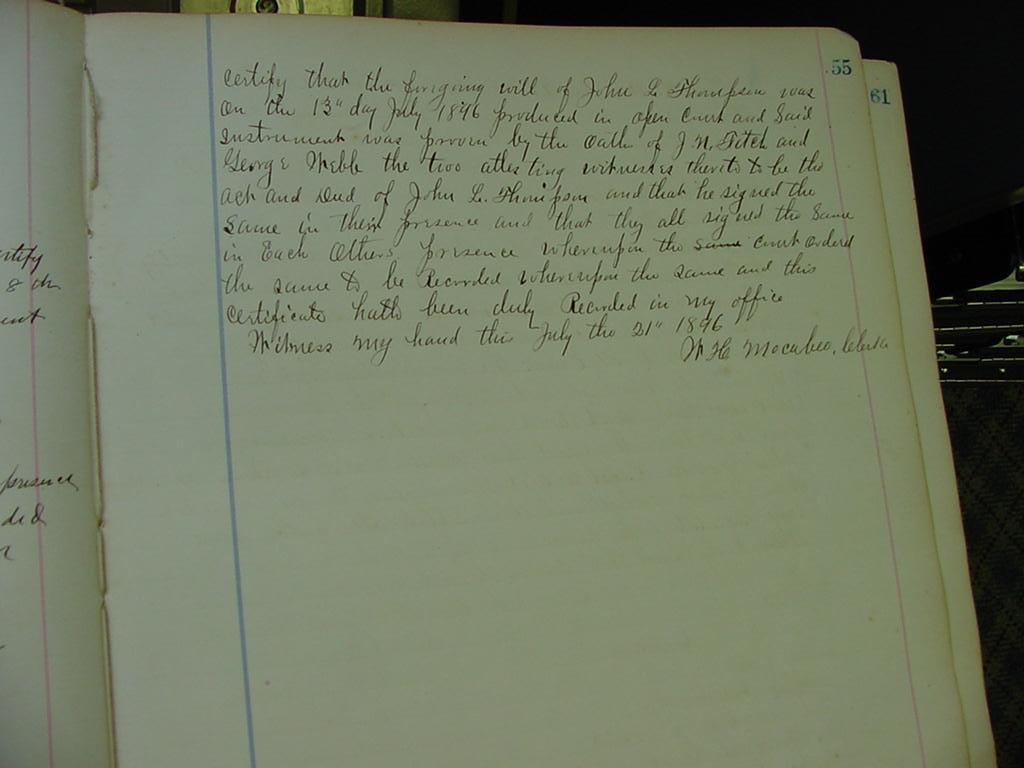 55
61
certify that the forgoing will of John L. Thompson was
On the 13" day July 1896 produced in open Court and Said
Instrument was proven by the Oath of J. N. Fitch and
George Webb the two attesting witnesses therito to be the
act and Deed of John L. Thompson and that he signed the
Same in their presence and that they all signed the Same
in Each Others presence whereupon the same Court ordered
the same to be Recorded whereupon the same and this
Certificate hath been duly Recorded in my office
Witness my hand this July the 21" 1896
W H Mocabee, Clerk
8 th
presence